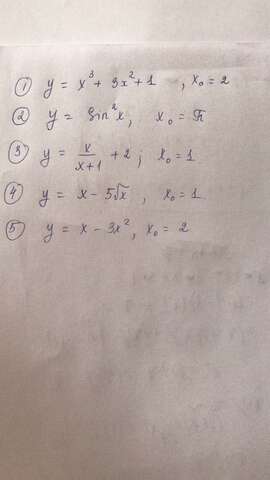 ① y = x³ + 3x² + 1 , x₀ = 2
② y = Sin²x, x₀ = π
③ y = x/(x+1) + 2; x₀ = 1
④ y = x - 5√x , x₀ = 1
⑤ y = x - 3x², x₀ = 2